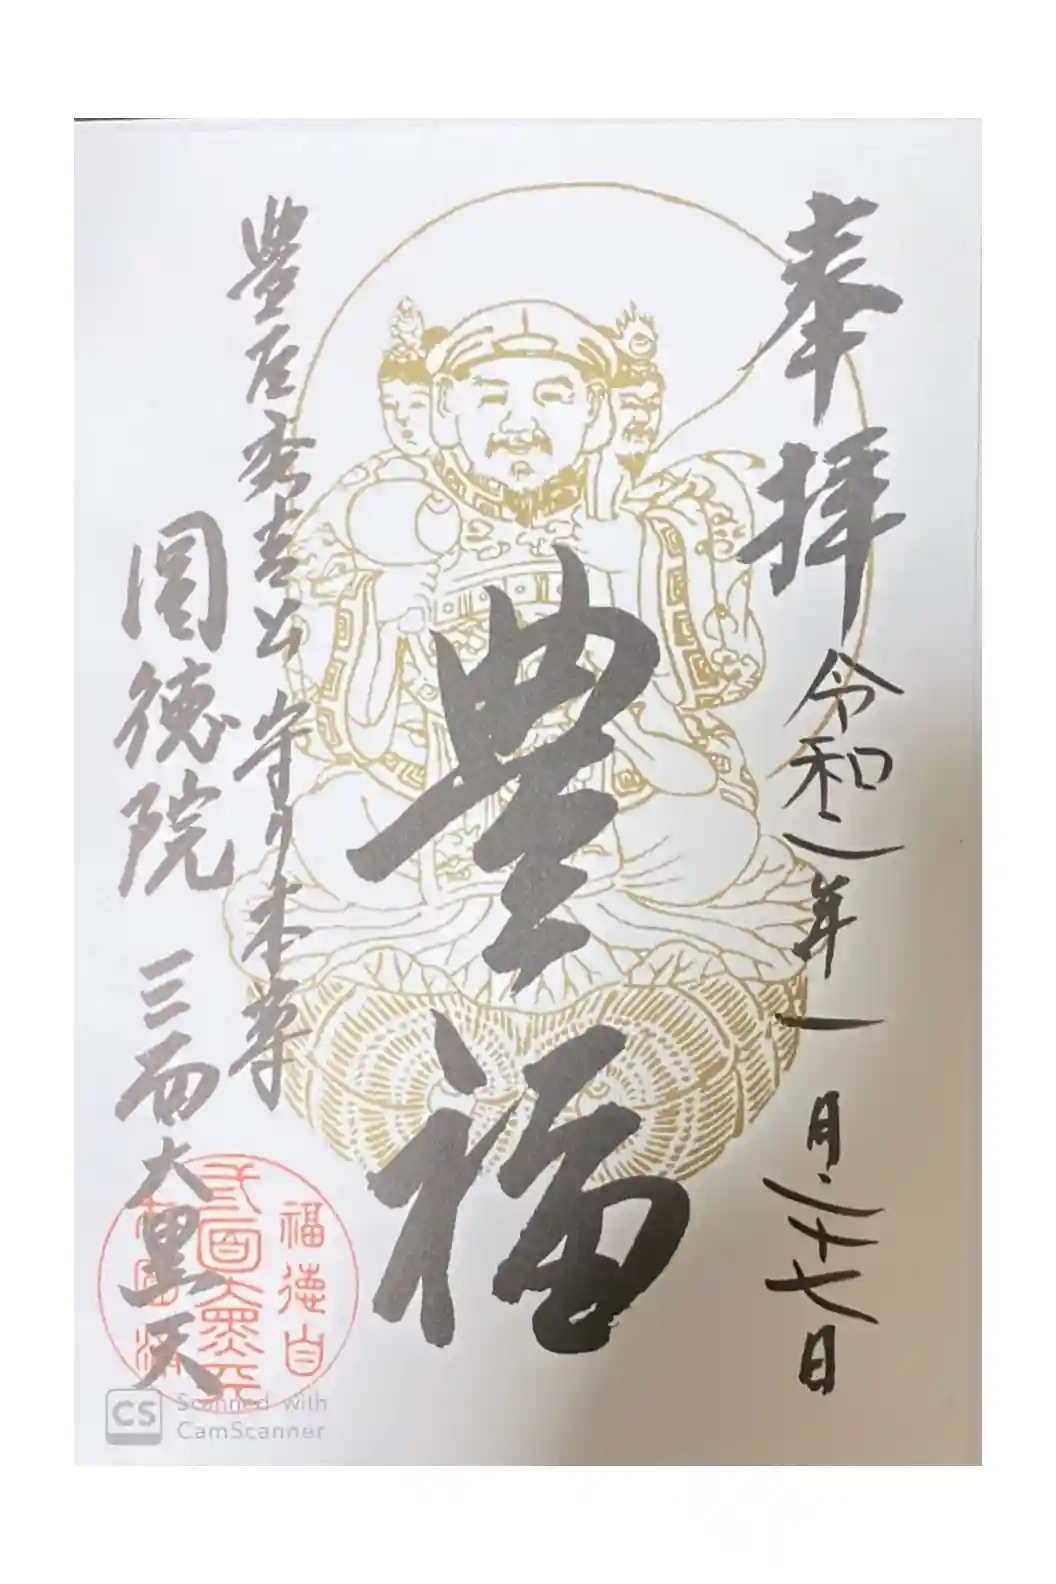 奉拝
令和二年一月二十七日
豊福
豊臣秀吉公 守り本尊
圓徳院 三面大黒天
福徳自
三面大黒天
CS Scanned with
CamScanner